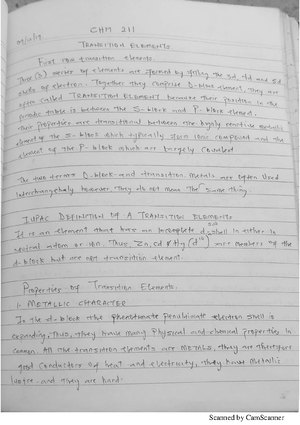 CHM 211
TRANSITION ELEMENTS
First row transition elements.
Three (3) series of elements are formed by filling the 3d, 4d and 5d
shells of electron. Together they comprise D-block element. They are
often called TRANSITION ELEMENT because their position in the
periodic table is between the S-block and P-block element.
Their properties are transitional between the highly reactive metallic
element of the S-block which typically form ionic compound and the
element of the P-block which are largely covalent.
The two terms D-block and transition metals are often used
interchangeably however, they do not mean the same thing
IUPAC DEFINITION OF A TRANSITION ELEMENTS
It is an element that has an incomplete d shell in either in
neutral atom or ion. Thus, Zn, Cd & Hg (d¹⁰) are members of the
d-block but are not transition element.
Properties of Transition Elements:
1. METALLIC CHARACTER
In the d-block the penultimate electron shell is
expanding, Thus, they have many physical and chemical properties in
common. All the transition elements are METALS, they are therefore
good conductors of heat and electricity, they have metallic
luster and they are hard.
Scanned by CamScanner